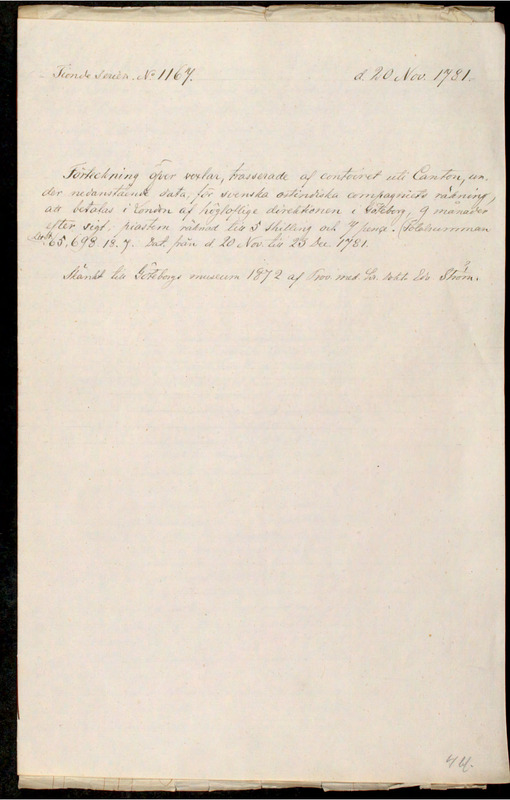 Tionde serien. No 1167. d. 20 Nov. 1781.
Förteckning öfver vexlar, trasserade af contoiret uti Canton, un-
der nedanstående data, för svenska ostindiska compagniets räkning,
att betalas i London af höglofliga direktionen i Göteborg, 9 månader
efter sigt, piastern räknad till 5 shilling och 7 pence. (Totalsumman
65,698. 18. 7. Dat. från d. 20 Nov. till 23 Dec. 1781.
Skänkt till Göteborgs museum 1872 af Prov. med. L. dokt. Edv. Ström.
44.